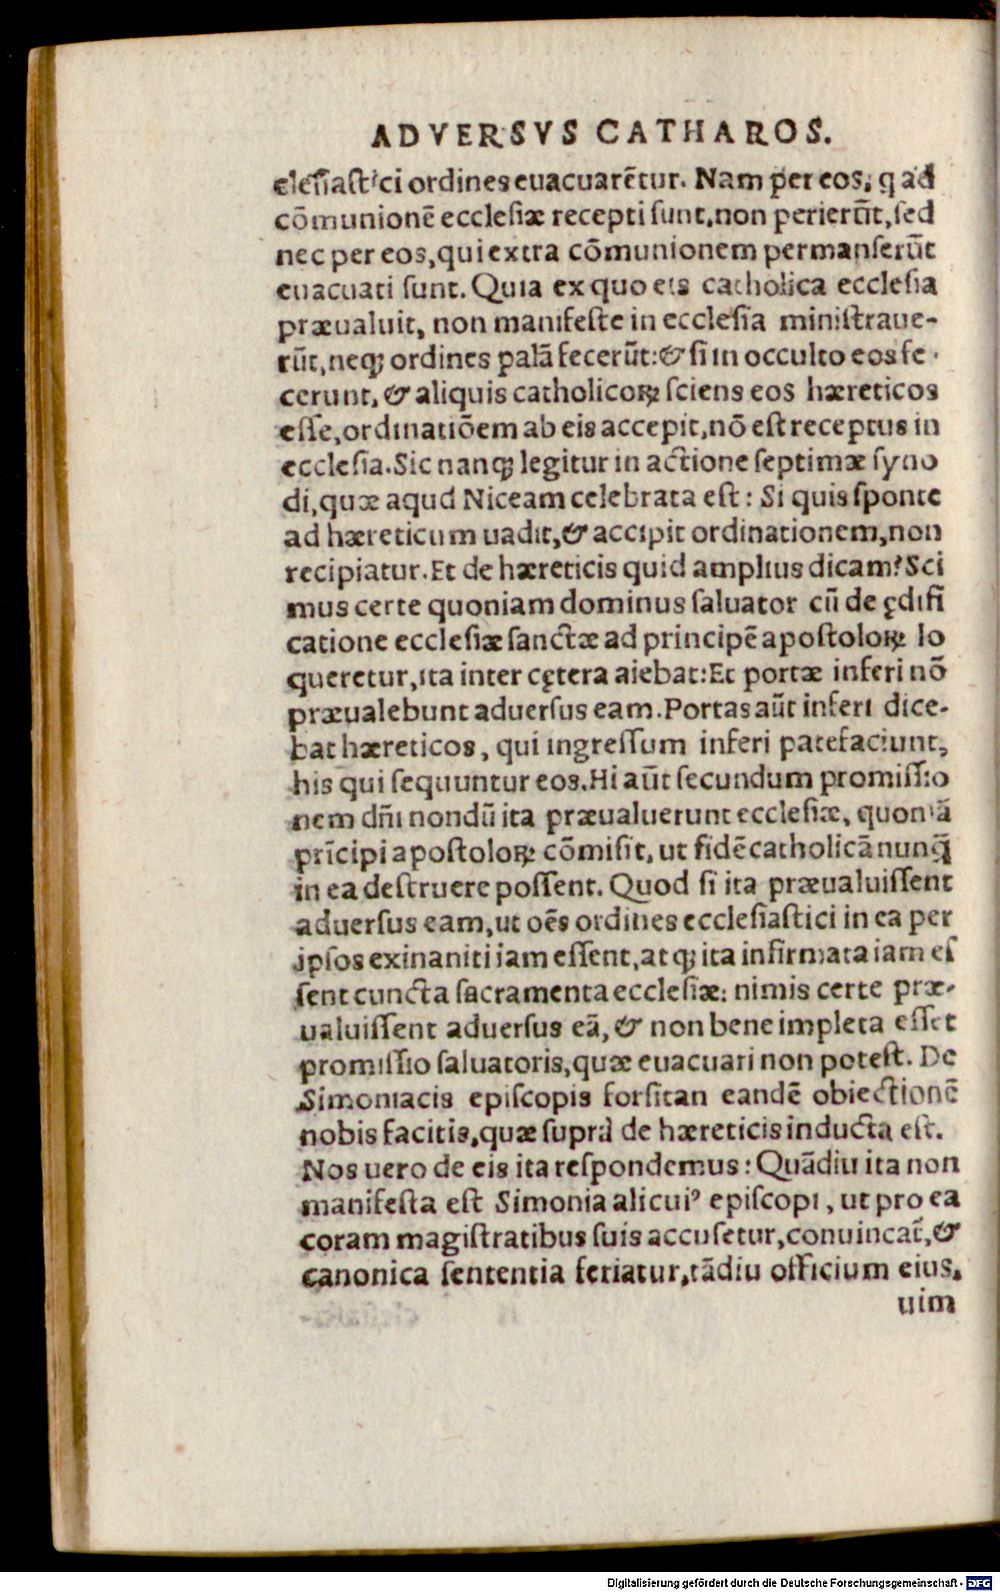 ADVERSVS CATHAROS.
clesiastici ordines euacuarẽtur. Nam per eos, q ad
cõmunionẽ ecclesiæ recepti sunt, non perierũt, sed
nec per eos, qui extra cõmunionem permanserũt
euacuati sunt. Quia ex quo eis catholica ecclesia
præualuit, non manifeste in ecclesia ministraue-
rũt, neq; ordines palã fecerũt: & si in occulto eos fe-
cerunt, & aliquis catholicoꝝ sciens eos hæreticos
esse, ordinatiõem ab eis accepit, nõ est receptus in
ecclesia. Sic nanq; legitur in actione septimæ syno
di, quæ aqud Niceam celebrata est: Si quis sponte
ad hæreticum uadit, & accipit ordinationem, non
recipiatur. Et de hæreticis quid amplius dicam? Sci
mus certe quoniam dominus saluator cũ de ędifi
catione ecclesiæ sanctæ ad principẽ apostoloꝝ lo
queretur, ita inter cętera aiebat: Et portæ inferi nõ
præualebunt aduersus eam. Portas aũt inferi dice-
bat hæreticos, qui ingressum inferi patefaciunt,
his qui sequuntur eos. Hi aũt secundum promissio
nem dñi nondũ ita præualuerunt ecclesiæ, quoniã
prĩcipi apostoloꝝ cõmisit, ut fidẽ catholicã nunq̃
in ea destruere possent. Quod si ita præualuissent
aduersus eam, ut oẽs ordines ecclesiastici in ea per
ipsos exinaniti iam essent, atq; ita infirmata iam es
sent cuncta sacramenta ecclesiæ: nimis certe præ-
ualuissent aduersus eã, & non bene impleta esset
promissio saluatoris, quæ euacuari non potest. De
Simoniacis episcopis forsitan eandẽ obiectionẽ
nobis facitis, quæ supra de hæreticis inducta est.
Nos uero de eis ita respondemus: Quãdiu ita non
manifesta est Simonia alicuiꝰ episcopi, ut pro ea
coram magistratibus suis accusetur, conuincat̃, &
canonica sententia feriatur, tãdiu officium eius,
uim
Digitalisierung gefördert durch die Deutsche Forschungsgemeinschaft - DFG